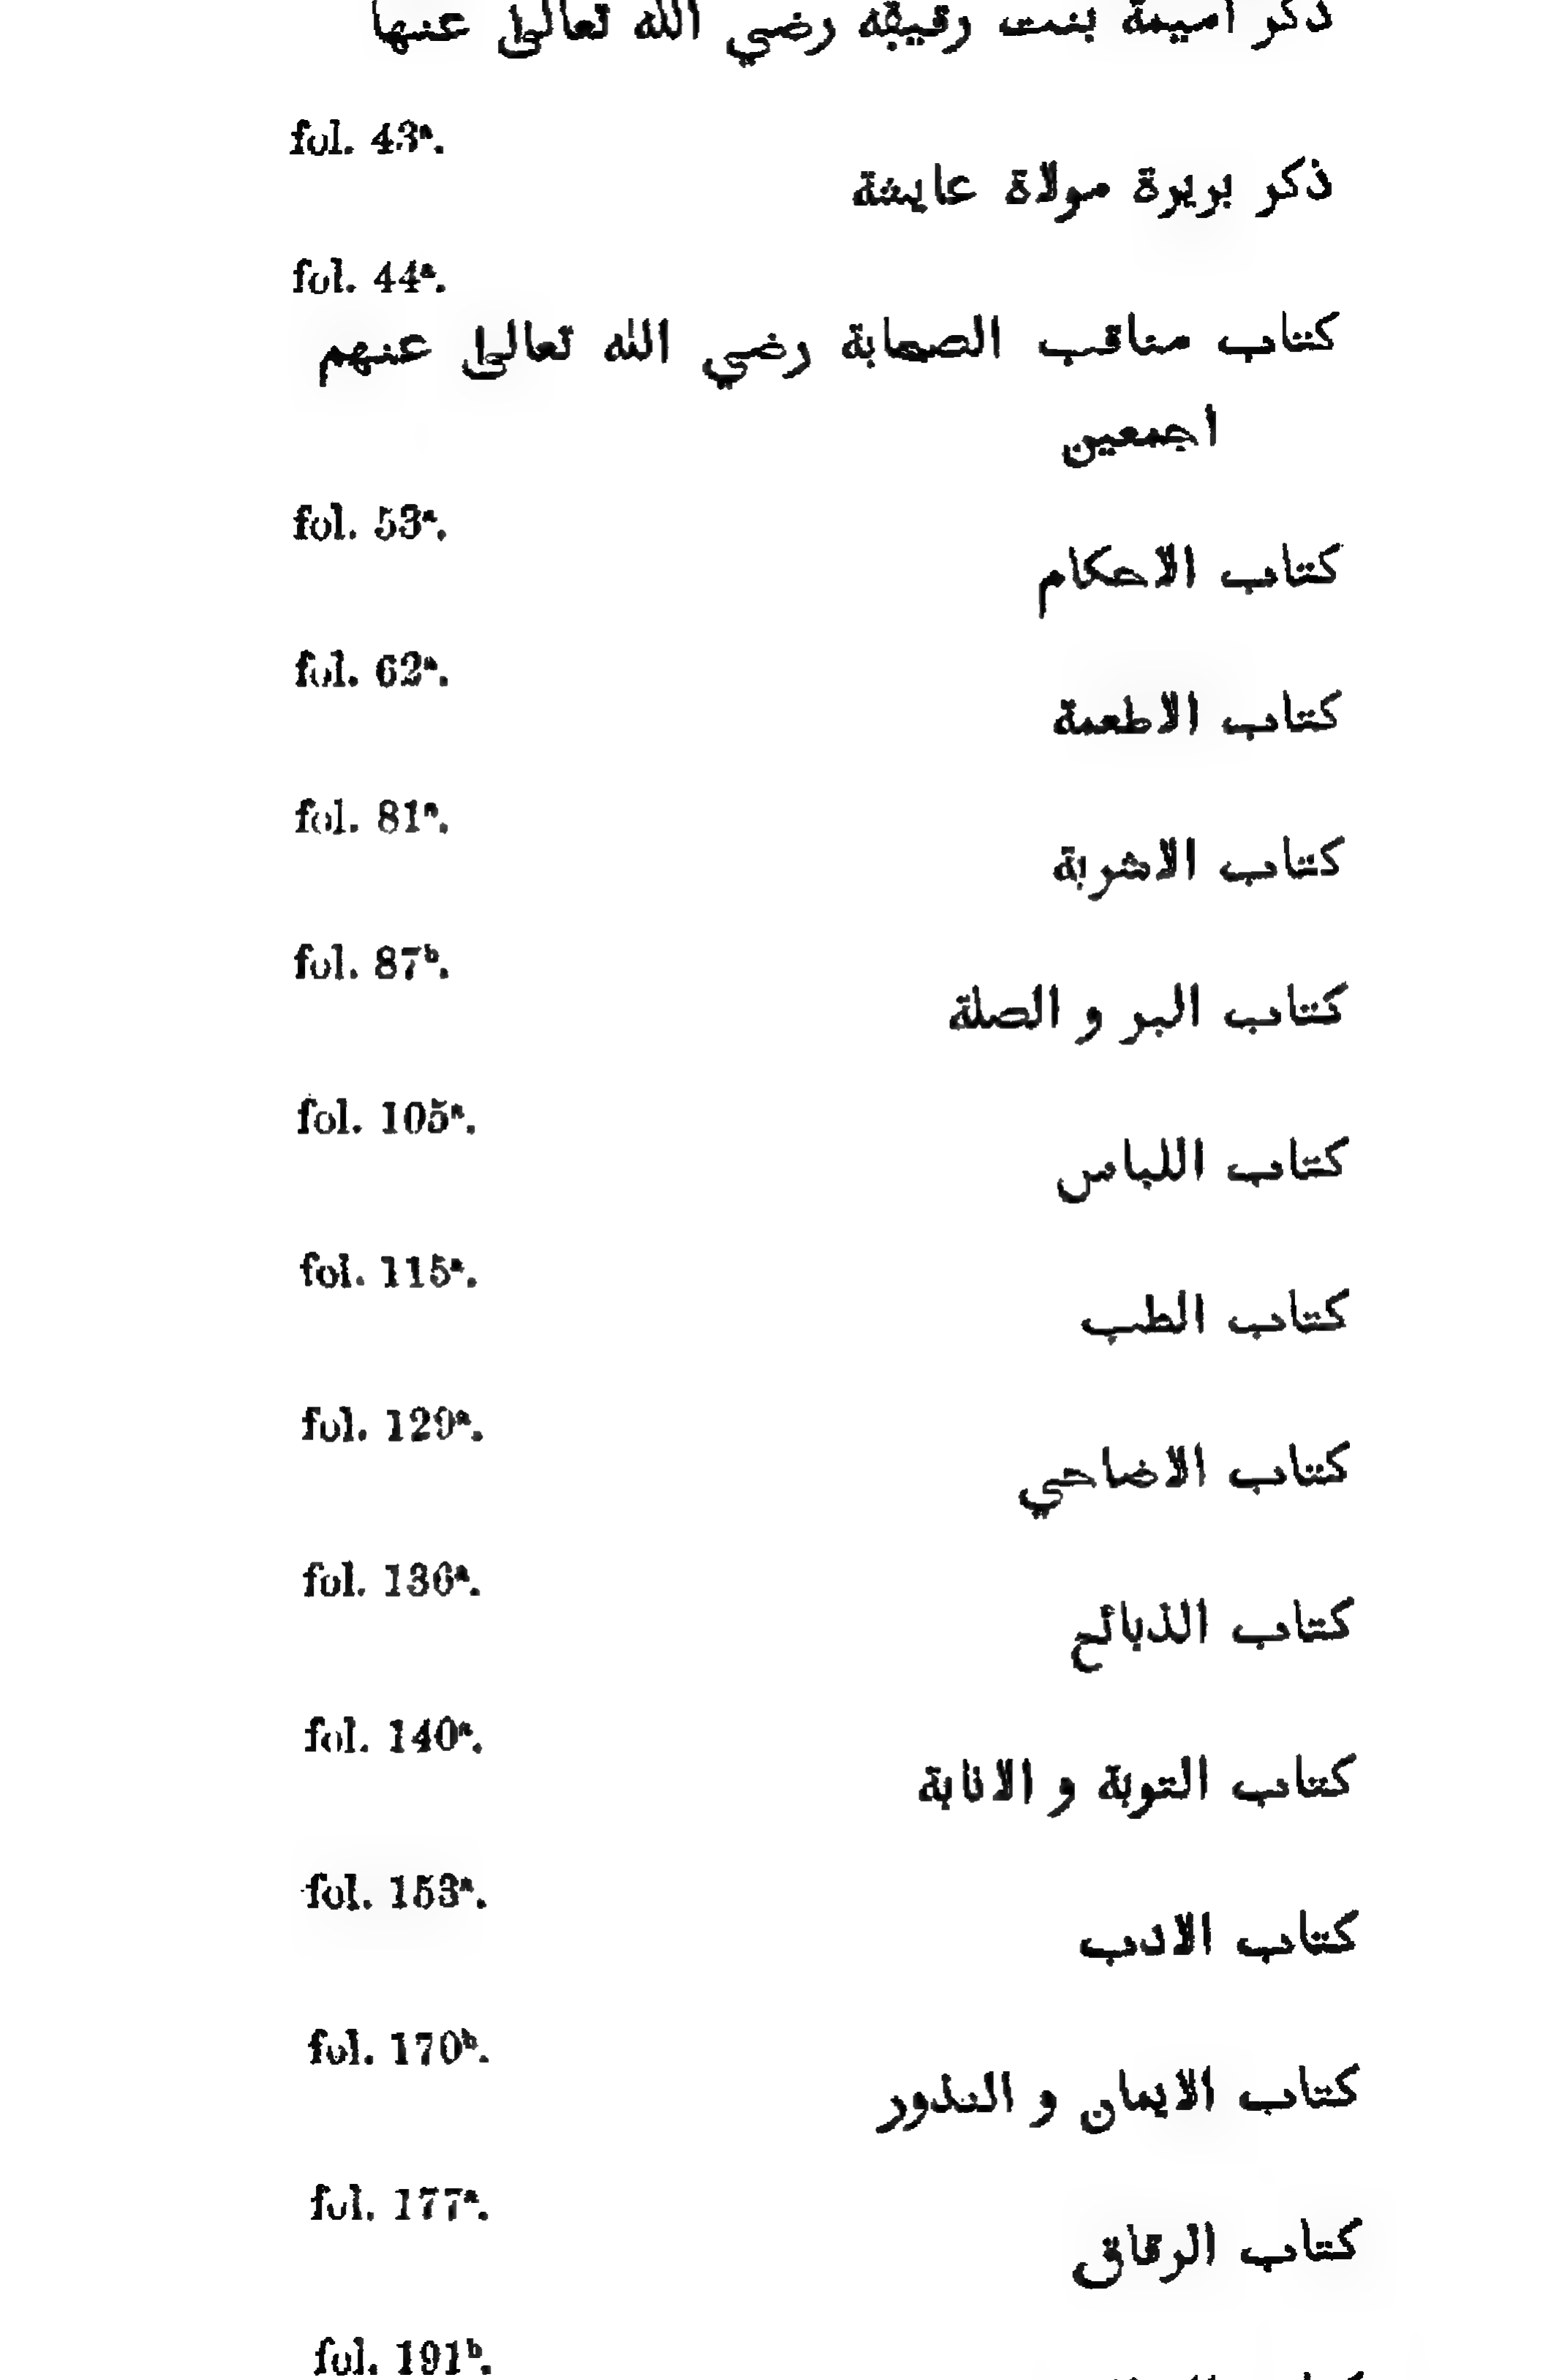 ذكر اميمة بنت رقيقه رضي الله تعالىٰ عنها
fol. 43ᵃ.
ذكر بريرة مولاة عايشة
fol. 44ᵃ.
كتاب مناقب الصحابة رضي الله تعالىٰ عنهم
اجمعين
fol. 53ᵃ.
كتاب الاحكام
fol. 62ᵃ.
كتاب الاطعمة
fol. 81ᵃ.
كتاب الاشربة
fol. 87ᵇ.
كتاب البر و الصلة
fol. 105ᵃ.
كتاب اللباس
fol. 115ᵃ.
كتاب الطب
fol. 129ᵃ.
كتاب الاضاحي
fol. 136ᵃ.
كتاب الذبائح
fol. 140ᵃ.
كتاب التوبة و الانابة
fol. 153ᵃ.
كتاب الادب
fol. 170ᵇ.
كتاب الايمان و النذور
fol. 177ᵃ.
كتاب الرقاق
fol. 191ᵇ.